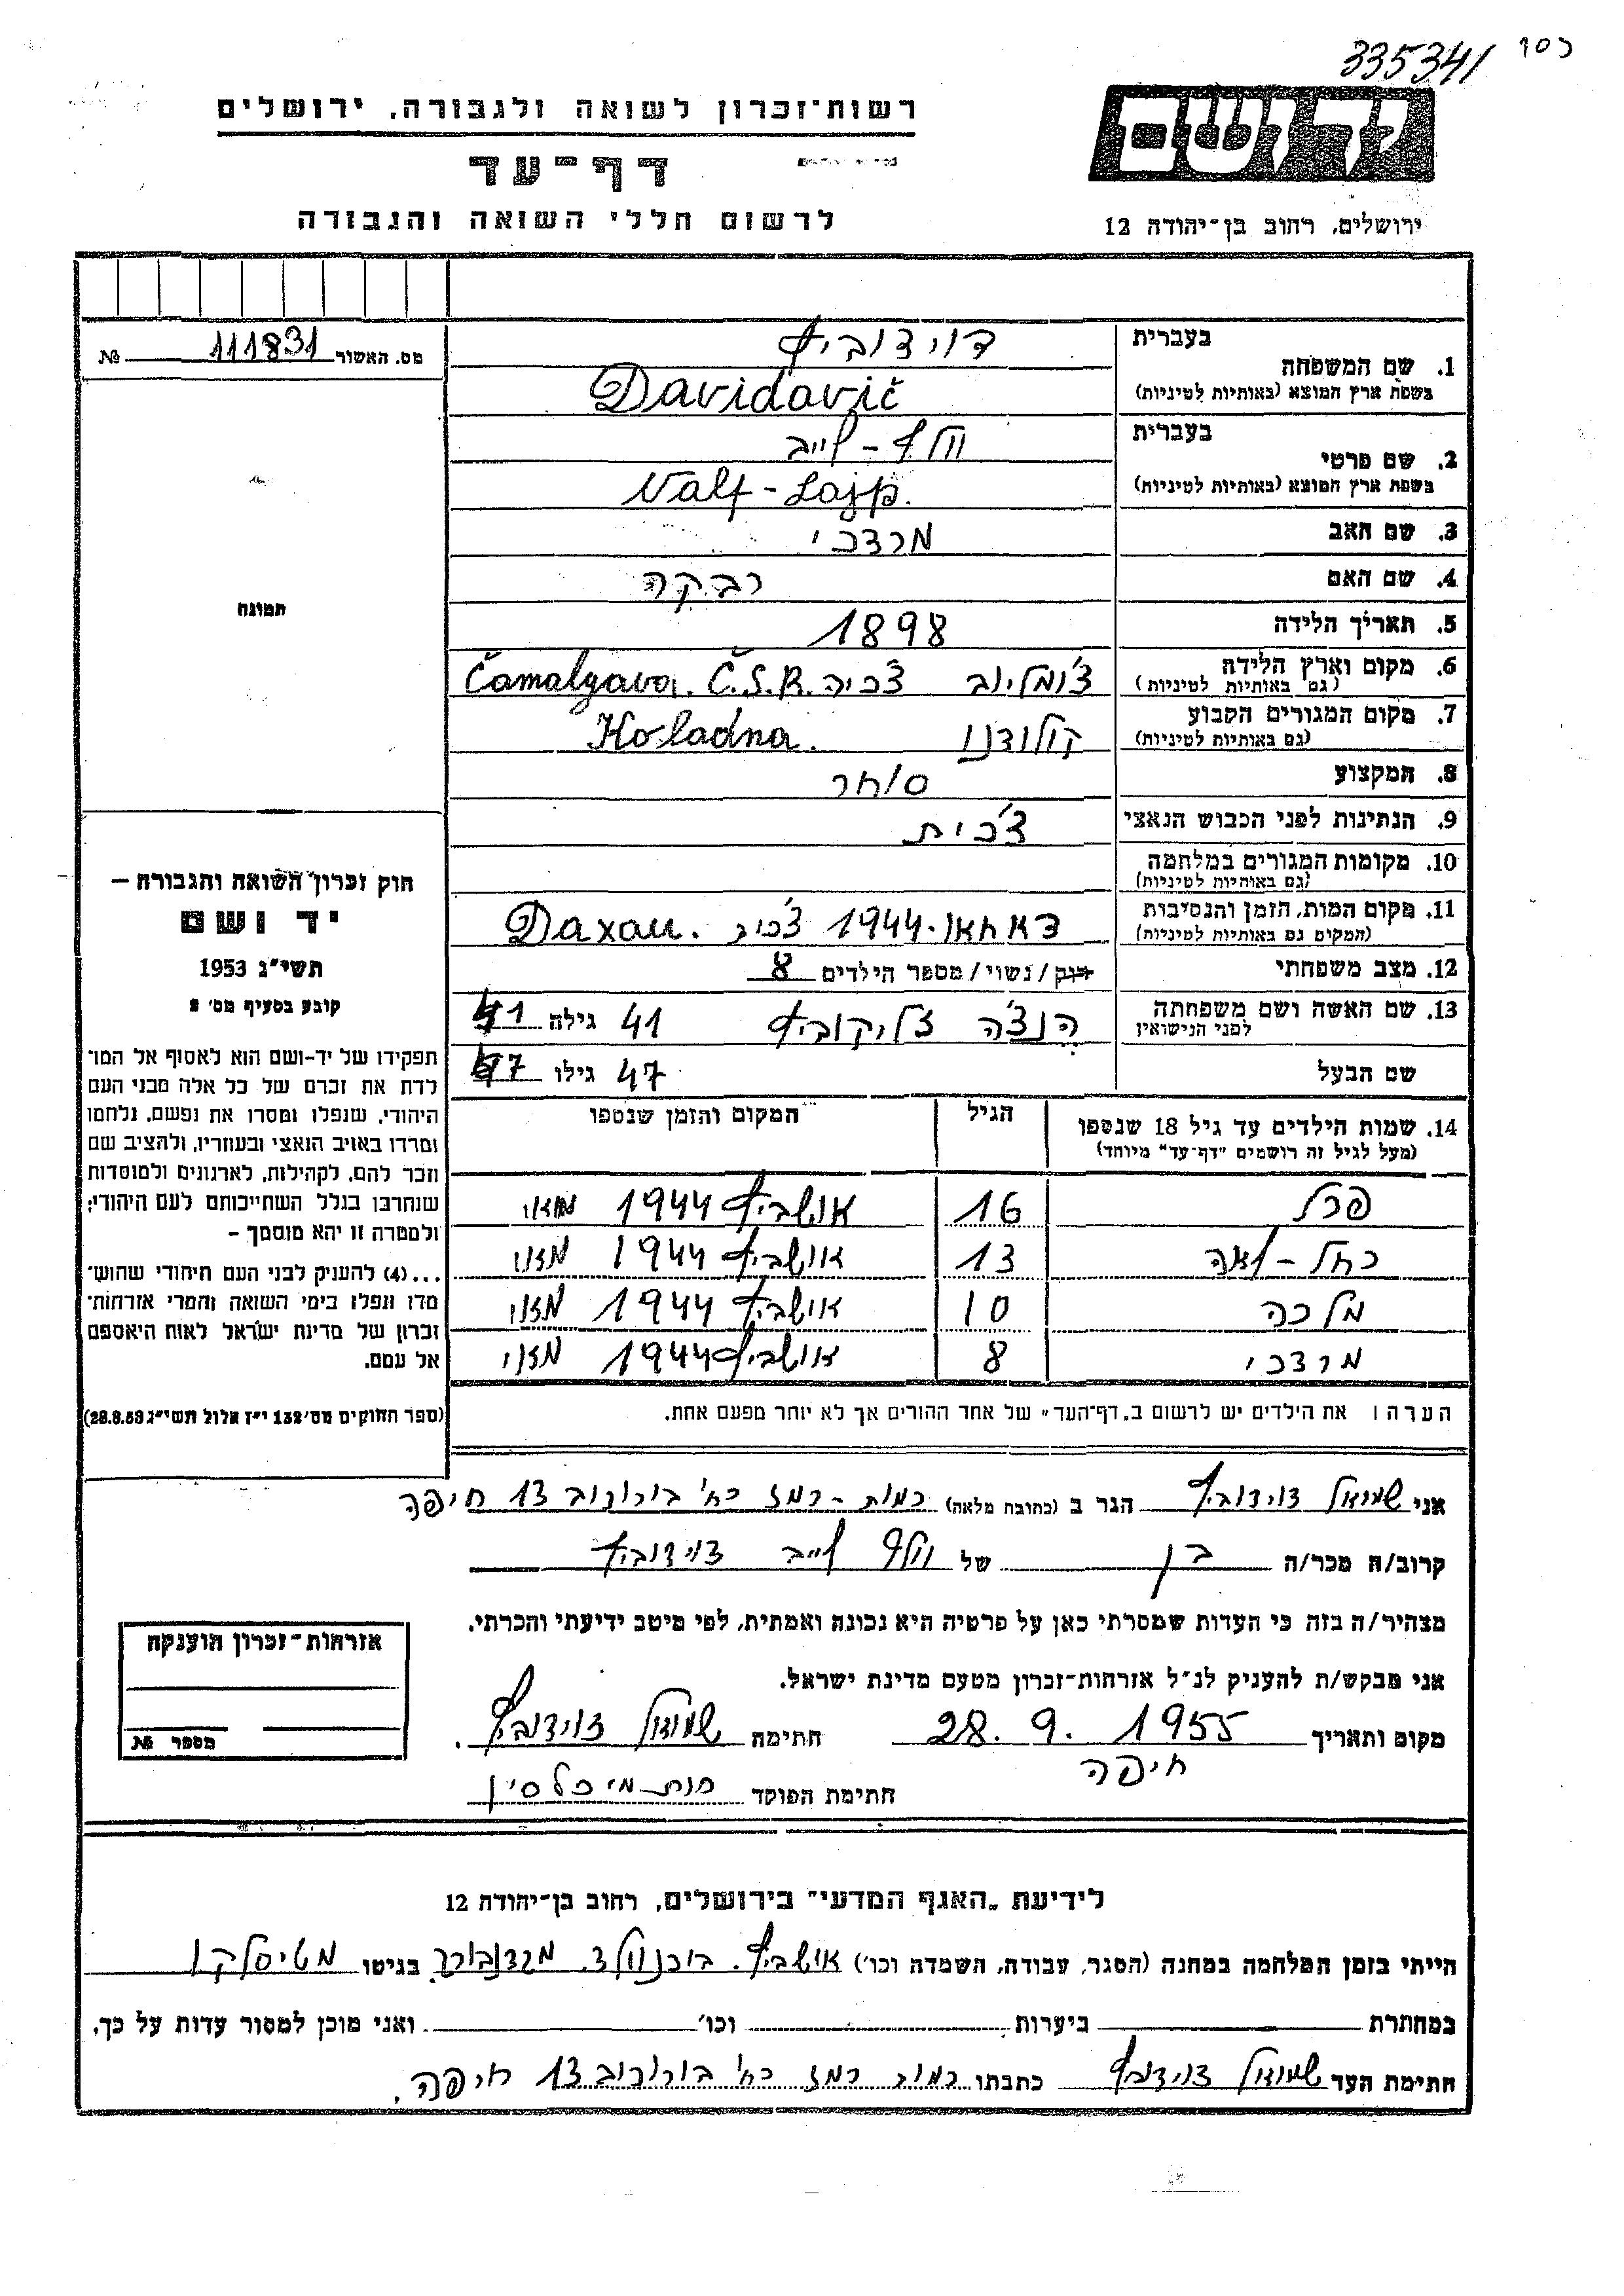 335341
יד ושם
רשות־זכרון לשואה ולגבורה, ירושלים
דף־עד
לרשום חללי השואה והגבורה
ירושלים, רחוב בן־יהודה 12
מס. האשור 111831 №
בעברית דוידוביץ
1. שם המשפחה
בשפת ארץ המוצא (באותיות לטיניות) Davidovič
בעברית וולף - לייב
2. שם פרטי
בשפת ארץ המוצא (באותיות לטיניות) Valf - Lajp.
3. שם האב מרדכי
4. שם האם רבקה
5. תאריך הלידה 1898
6. מקום וארץ הלידה צ'ומליוב צ'כיה Čamalyava. Č.S.R.
(גם באותיות לטיניות)
7. מקום המגורים הקבוע קולודנו Koladna.
(גם באותיות לטיניות)
8. המקצוע סוחר
9. הנתינות לפני הכבוש הנאצי צ'כית
10. מקומות המגורים במלחמה
(גם באותיות לטיניות)
11. מקום המות, הזמן והנסיבות דאחאו. 1944 Daxau.
(המקום גם באותיות לטיניות)
12. מצב משפחתי רוק/נשוי/מספר הילדים 8
13. שם האשה ושם משפחתה הנצ'ה זליקוביץ 41 גילה 41
לפני הנישואין
שם הבעל 47 גילו 47
14. שמות הילדים עד גיל 18 שנספו הגיל המקום והזמן שנספו
(מעל לגיל זה רושמים "דף־עד" מיוחד)
פרל 16 אושביץ 1944 מאי
רחל - לאה 13 אושביץ 1944 מאי
מלכה 10 אושביץ 1944 מאי
מרדכי 8 אושביץ 1944 מאי
הערה: את הילדים יש לרשום ב„דף־העד" של אחד ההורים אך לא יותר מפעם אחת.
תמונה
חוק זכרון השואה והגבורה –
יד ושם
תשי"ג 1953
קובע בסעיף מס' 2
תפקידו של יד־ושם הוא לאסוף אל המו־
לדת את זכרם של כל אלה מבני העם
היהודי, שנפלו ומסרו את נפשם, נלחמו
ומרדו באויב הנאצי ובעוזריו, ולהציב שם
וזכר להם, לקהילות, לארגונים ולמוסדות
שנחרבו בגלל השתייכותם לעם היהודי;
ולמטרה זו יהא מוסמך –
...(4) להעניק לבני העם היהודי שהוש־
מדו ונפלו בימי השואה והמרי אזרחות־
זכרון של מדינת ישראל לאות היאספם
אל עמם.
(ספר החוקים מס' 132 י"ז אלול תשי"ג 28.8.53)
אני שמואל דוידוביץ הגר ב (כתובת מלאה) רמות - רמז רח' בורוכוב 13 חיפה
קרוב/ה מכר/ה בן של וולף לייב דוידוביץ
מצהיר/ה בזה כי העדות שמסרתי כאן על פרטיה היא נכונה ואמתית, לפי מיטב ידיעתי והכרתי.
אני מבקש/ת להעניק לנ"ל אזרחות־זכרון מטעם מדינת ישראל.
מקום ותאריך 28. 9. 1955 חתימה שמואל דוידוביץ.
חיפה
חתימת הפוקד
אזרחות־זכרון הוענקה
מספר №
לידיעת „האגף המדעי" בירושלים, רחוב בן־יהודה 12
הייתי בזמן המלחמה במחנה (הסגר, עבודה, השמדה וכו') אושביץ. בוכנוולד. מגדבורג בגיטו
במחתרת ביערות וכו' ואני מוכן למסור עדות על כך.
חתימת העד שמואל דוידוביץ כתבתו רמות רמז רח' בורוכוב 13 חיפה.